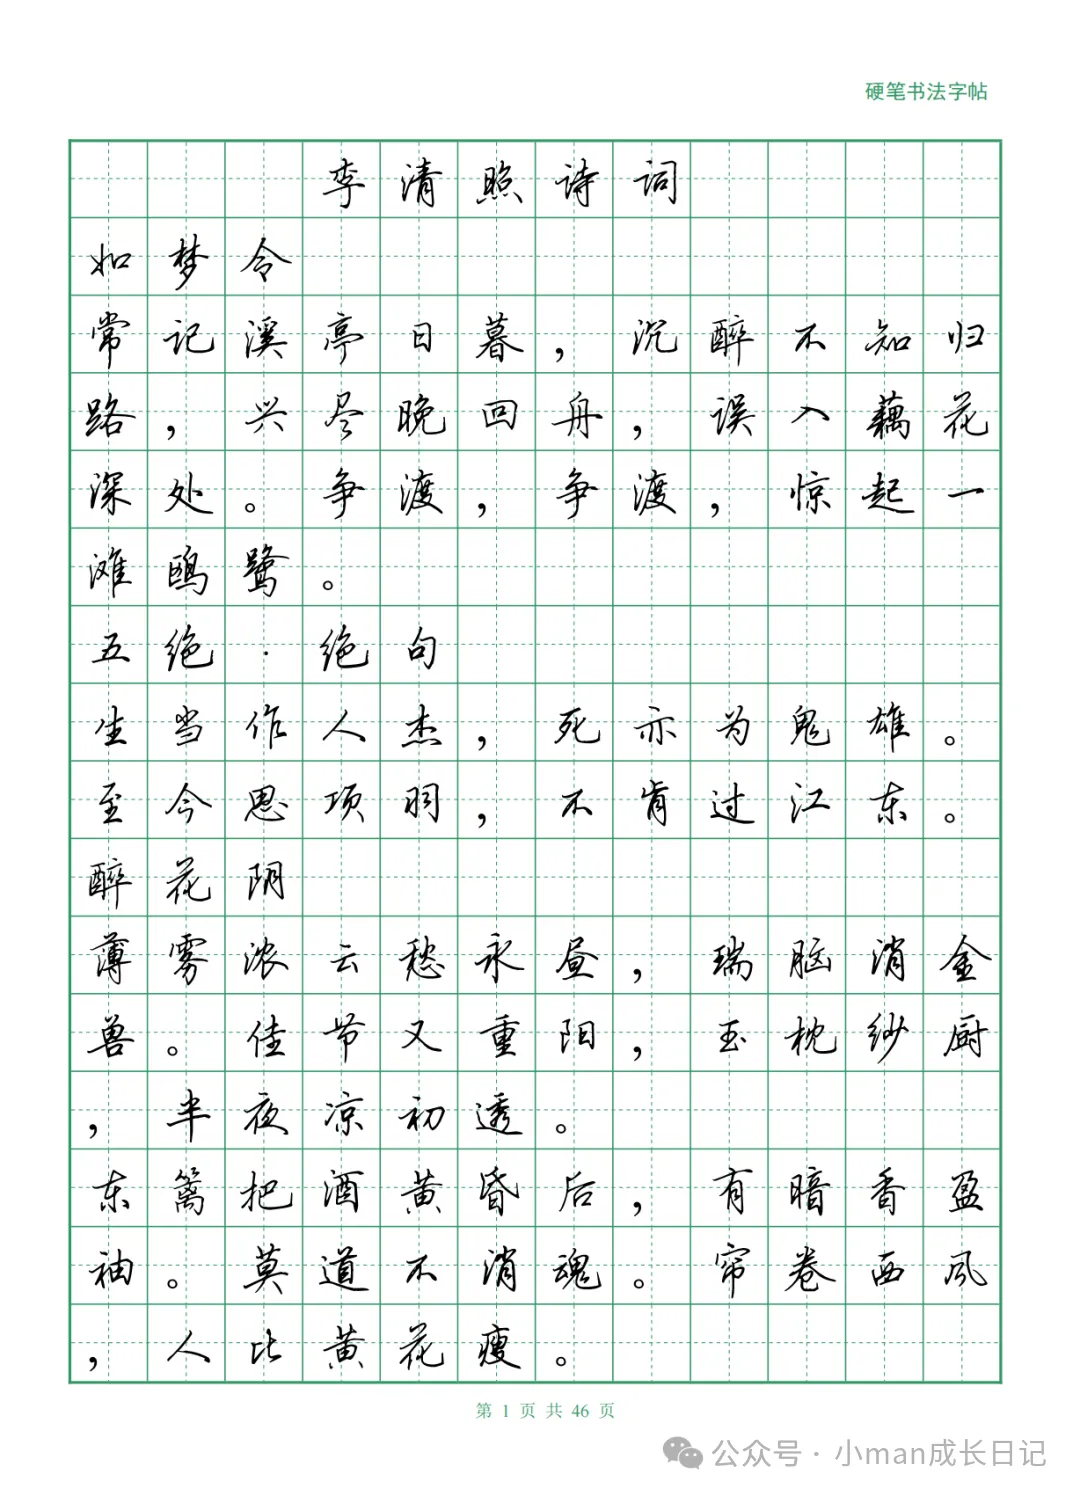 硬笔书法字帖
李清照诗词
如梦令
常记溪亭日暮，沉醉不知归
路，兴尽晚回舟，误入藕花
深处。争渡，争渡，惊起一
滩鸥鹭。
五绝·绝句
生当作人杰，死亦为鬼雄。
至今思项羽，不肯过江东。
醉花阴
薄雾浓云愁永昼，瑞脑消金
兽。佳节又重阳，玉枕纱厨
，半夜凉初透。
东篱把酒黄昏后，有暗香盈
袖。莫道不消魂。帘卷西风
，人比黄花瘦。
第 1 页 共 46 页
公众号 · 小man成长日记